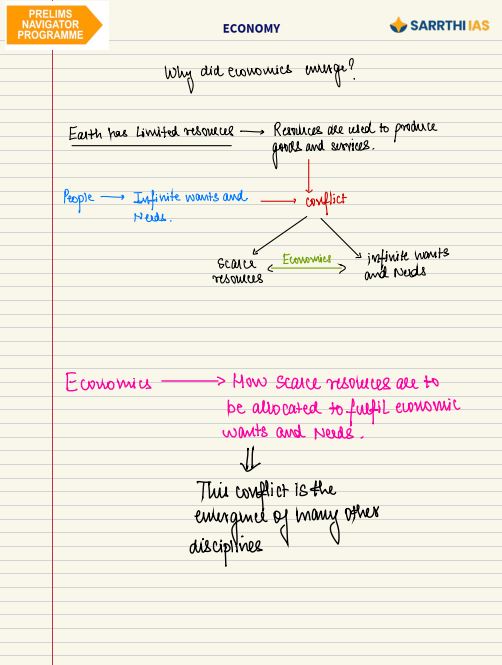 PRELIMS
NAVIGATOR
PROGRAMME
ECONOMY
SARRTHI IAS
Why did economics emerge?
Earth has Limited resources → Resources are used to produce
goods and services.
People → Infinite wants and → conflict
Needs.
scarce Economics infinite wants
resources and Needs
Economics → How scarce resources are to
be allocated to fulfil economic
wants and Needs.
This conflict is the
emergence of many other
disciplines